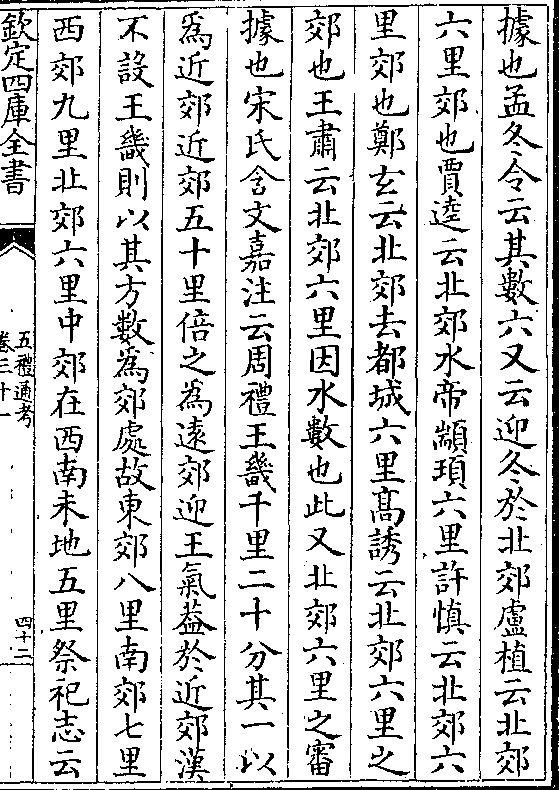 據也孟冬令云其數六又云迎冬於北郊盧植云北郊
六里郊也賈逵云北郊水帝顓頊六里許慎云北郊六
里郊也鄭玄云北郊去都城六里髙誘云北郊六里之
郊也王肅云北郊六里因水數也此又北郊六里之審
據也宋氏含文嘉注云周禮王畿千里二十分其一以
爲近郊近郊五十里倍之爲遠郊迎王氣葢於近郊漢
不設王畿則以其方數爲郊處故東郊八里南郊七里
西郊九里北郊六里中郊在西南未地五里祭祀志云
欽定四庫全書
五禮通考
卷三十一
四十二